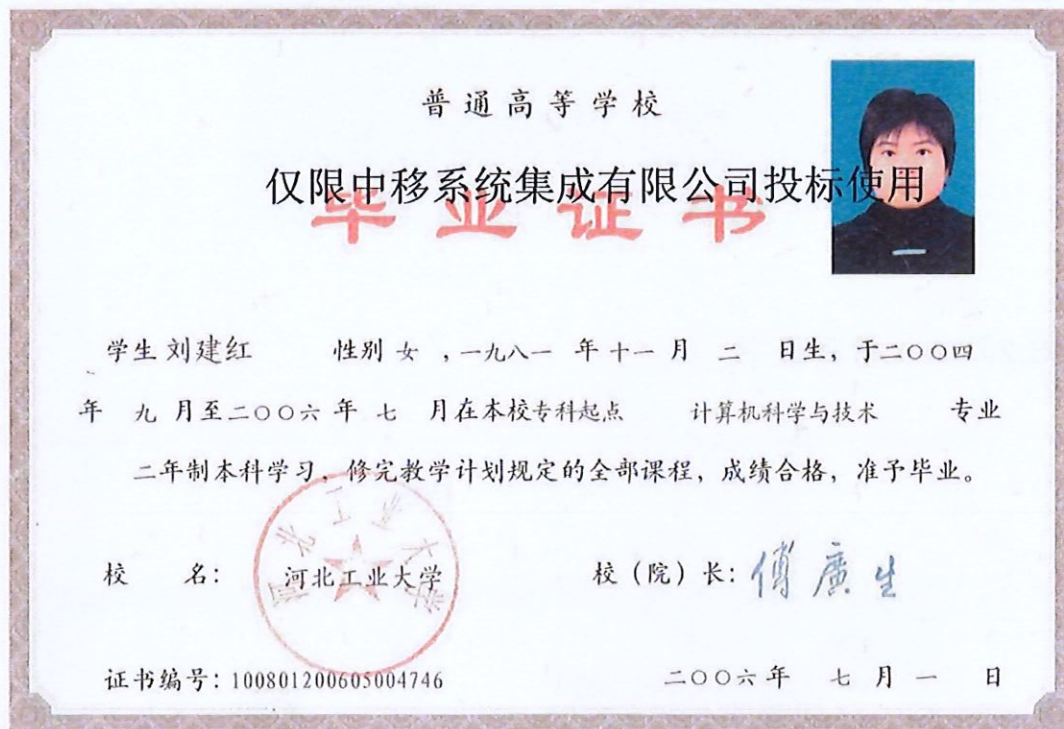 普通高等学校
仅限中移系统集成有限公司投标使用
毕业证书
学生 刘建红 性别 女 ,一九八一 年 十一 月 二 日生，于二〇〇四
年 九 月至二〇〇六 年 七 月在本校专科起点 计算机科学与技术 专业
二年制本科学习，修完教学计划规定的全部课程，成绩合格，准予毕业。
校 名： 河北工业大学 校（院）长：傅廣生
河北工业大学
证书编号：100801200605004746 二〇〇六 年 七 月 一 日